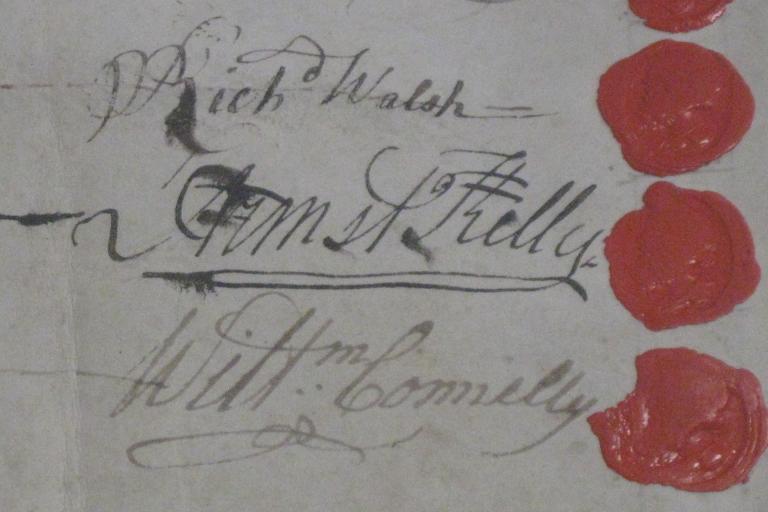 Richd Walsh
Armst Kelly
Willm Connelly